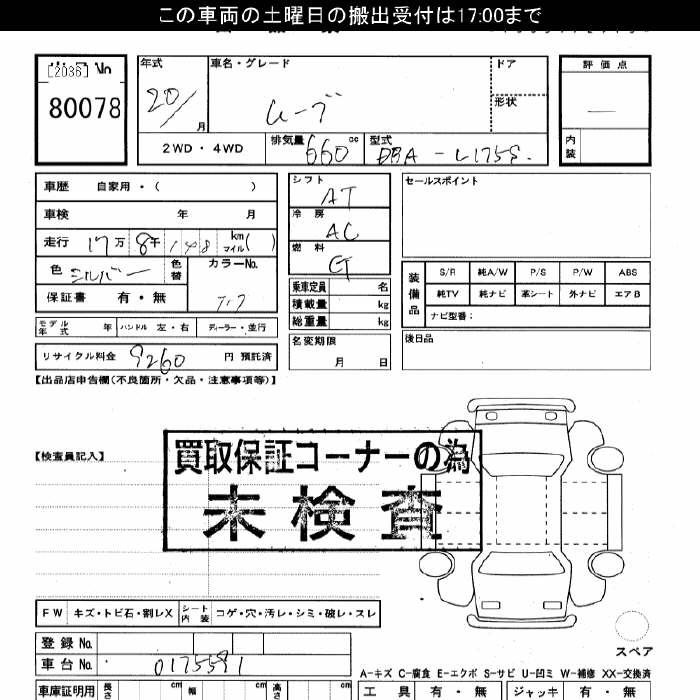 この車両の土曜日の搬出受付は17:00まで
[2036] No
80078
年式
20/
月
車名・グレード
ムーブ
ドア
形状
評価点
内装
2WD・4WD
排気量 660 cc
型式 DBA-L175S.
車歴 自家用・( )
車検 年 月
走行 17万 8千 148 km マイル( )
色 シルバー 色替 カラーNo.
保証書 有・無
モデル年式 年 ハンドル 左・右 ディーラー・並行
リサイクル料金 9260 円 預託済
シフト AT
冷房 AC
燃料
乗車定員 名
積載量 kg
総重量 kg
名変期限
月 日
セールスポイント
装備品
S/R 純A/W P/S P/W ABS
純TV 純ナビ 革シート 外ナビ エアB
ナビ型番:
後日品
【出品店申告欄(不良箇所・欠品・注意事項等)】
【検査員記入】
買取保証コーナーの為
未検査
FW キズ・トビ石・割レX シート内装 コゲ・穴・汚レ・シミ・破レ・スレ
登録No.
車台No. 0175591
スペア
A-キズ C-腐食 E-エクボ S-サビ U-凹ミ W-補修 XX-交換済
車庫証明用 長さ cm 幅 cm 高さ cm
工具 有・無 ジャッキ 有・無